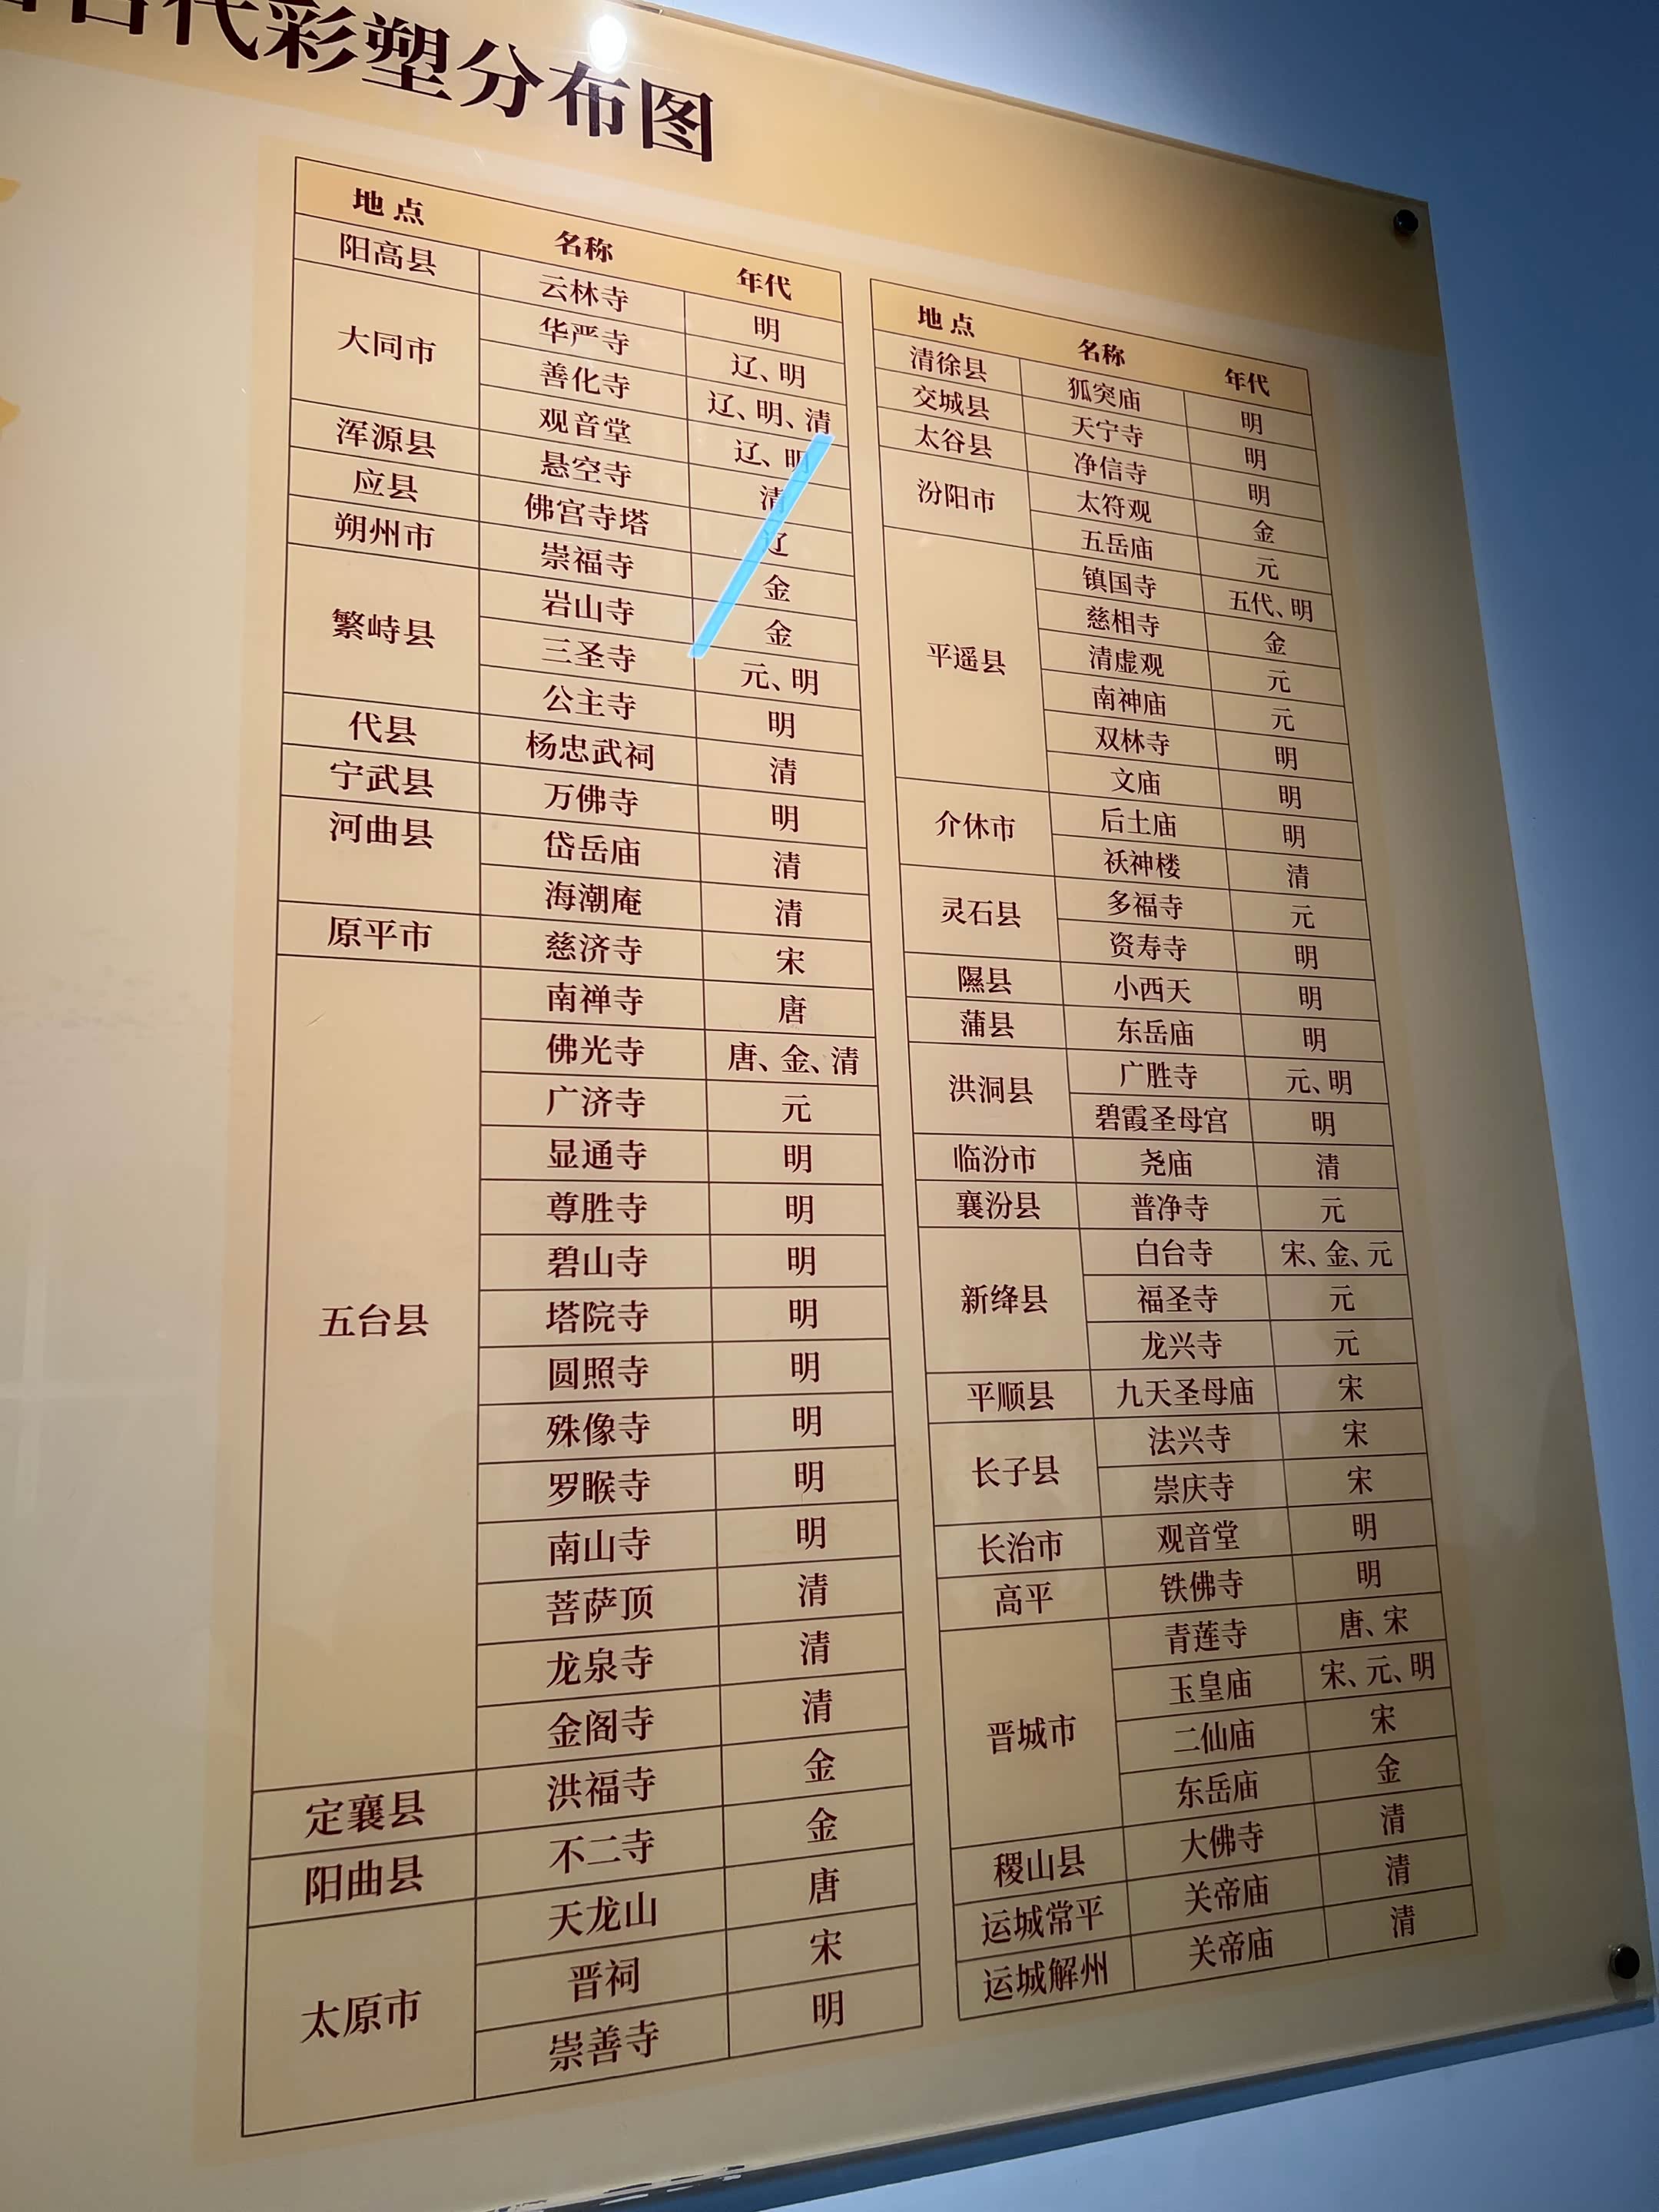 古代彩塑分布图
地点 名称 年代
阳高县 云林寺 明
大同市 华严寺 辽、明
善化寺 辽、明、清
观音堂 辽、明
浑源县 悬空寺 清
应县 佛宫寺塔 辽
朔州市 崇福寺 金
繁峙县 岩山寺 金
三圣寺 元、明
公主寺 明
代县 杨忠武祠 清
宁武县 万佛寺 明
河曲县 岱岳庙 清
海潮庵 清
原平市 慈济寺 宋
五台县 南禅寺 唐
佛光寺 唐、金、清
广济寺 元
显通寺 明
尊胜寺 明
碧山寺 明
塔院寺 明
圆照寺 明
殊像寺 明
罗睺寺 明
南山寺 明
菩萨顶 清
龙泉寺 清
金阁寺 清
定襄县 洪福寺 金
阳曲县 不二寺 金
太原市 天龙山 唐
晋祠 宋
崇善寺 明
地点 名称 年代
清徐县 狐突庙 明
交城县 天宁寺 明
太谷县 净信寺 明
汾阳市 太符观 金
五岳庙 元
平遥县 镇国寺 五代、明
慈相寺 金
清虚观 元
南神庙 元
双林寺 明
文庙 明
介休市 后土庙 明
祆神楼 清
灵石县 多福寺 元
资寿寺 明
隰县 小西天 明
蒲县 东岳庙 明
洪洞县 广胜寺 元、明
碧霞圣母宫 明
临汾市 尧庙 清
襄汾县 普净寺 元
新绛县 白台寺 宋、金、元
福圣寺 元
龙兴寺 元
平顺县 九天圣母庙 宋
长子县 法兴寺 宋
崇庆寺 宋
长治市 观音堂 明
高平 铁佛寺 明
晋城市 青莲寺 唐、宋
玉皇庙 宋、元、明
二仙庙 宋
东岳庙 金
稷山县 大佛寺 清
运城常平 关帝庙 清
运城解州 关帝庙 清